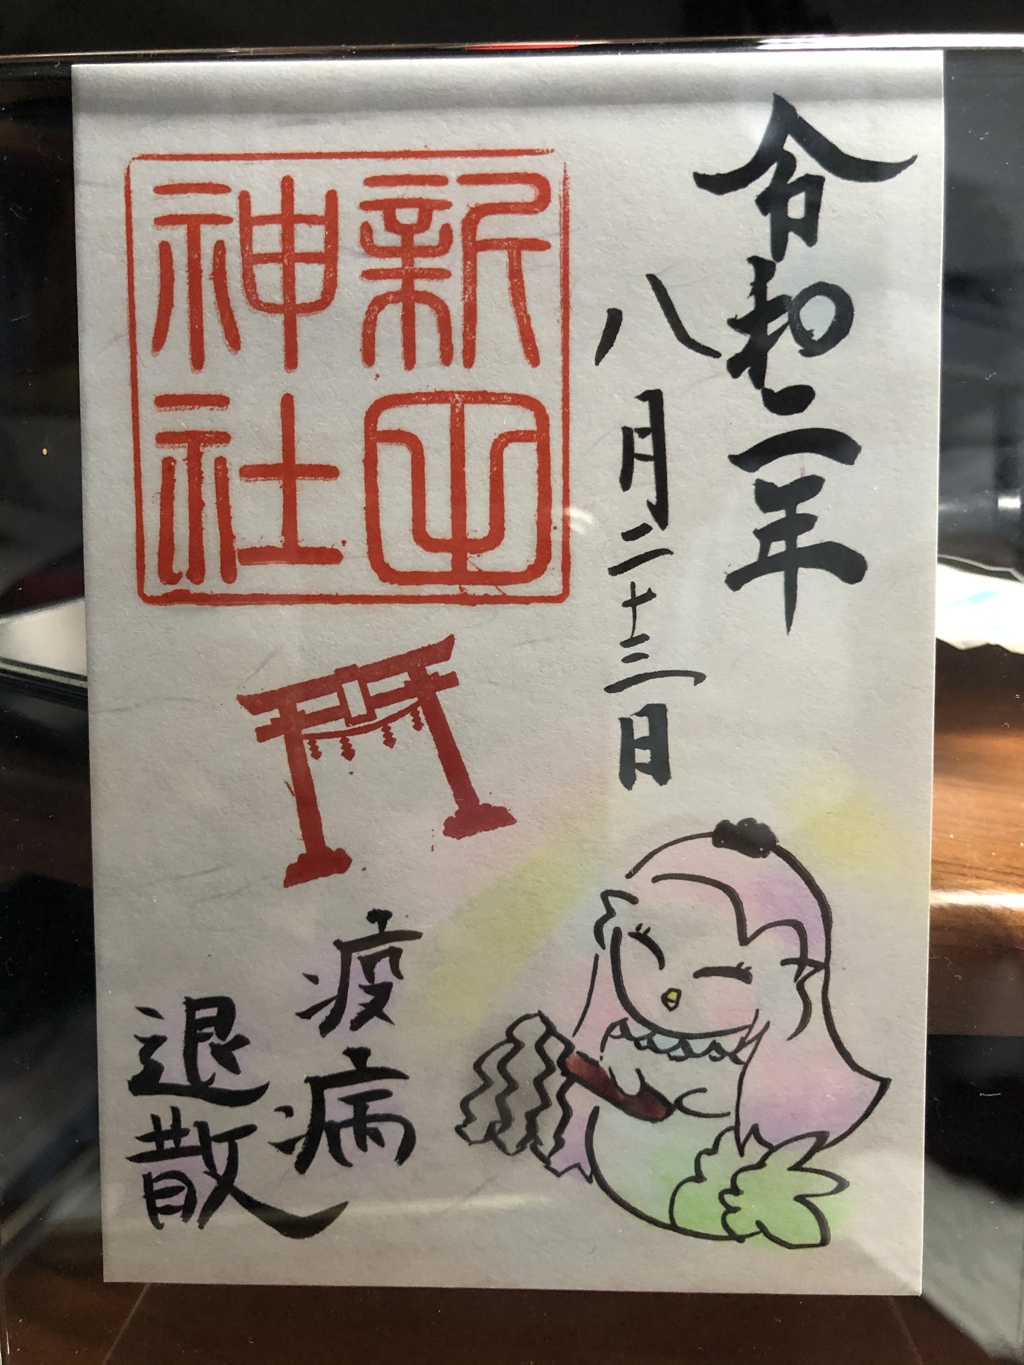 令和二年
八月二十三日
新田
神社
疫病
退散